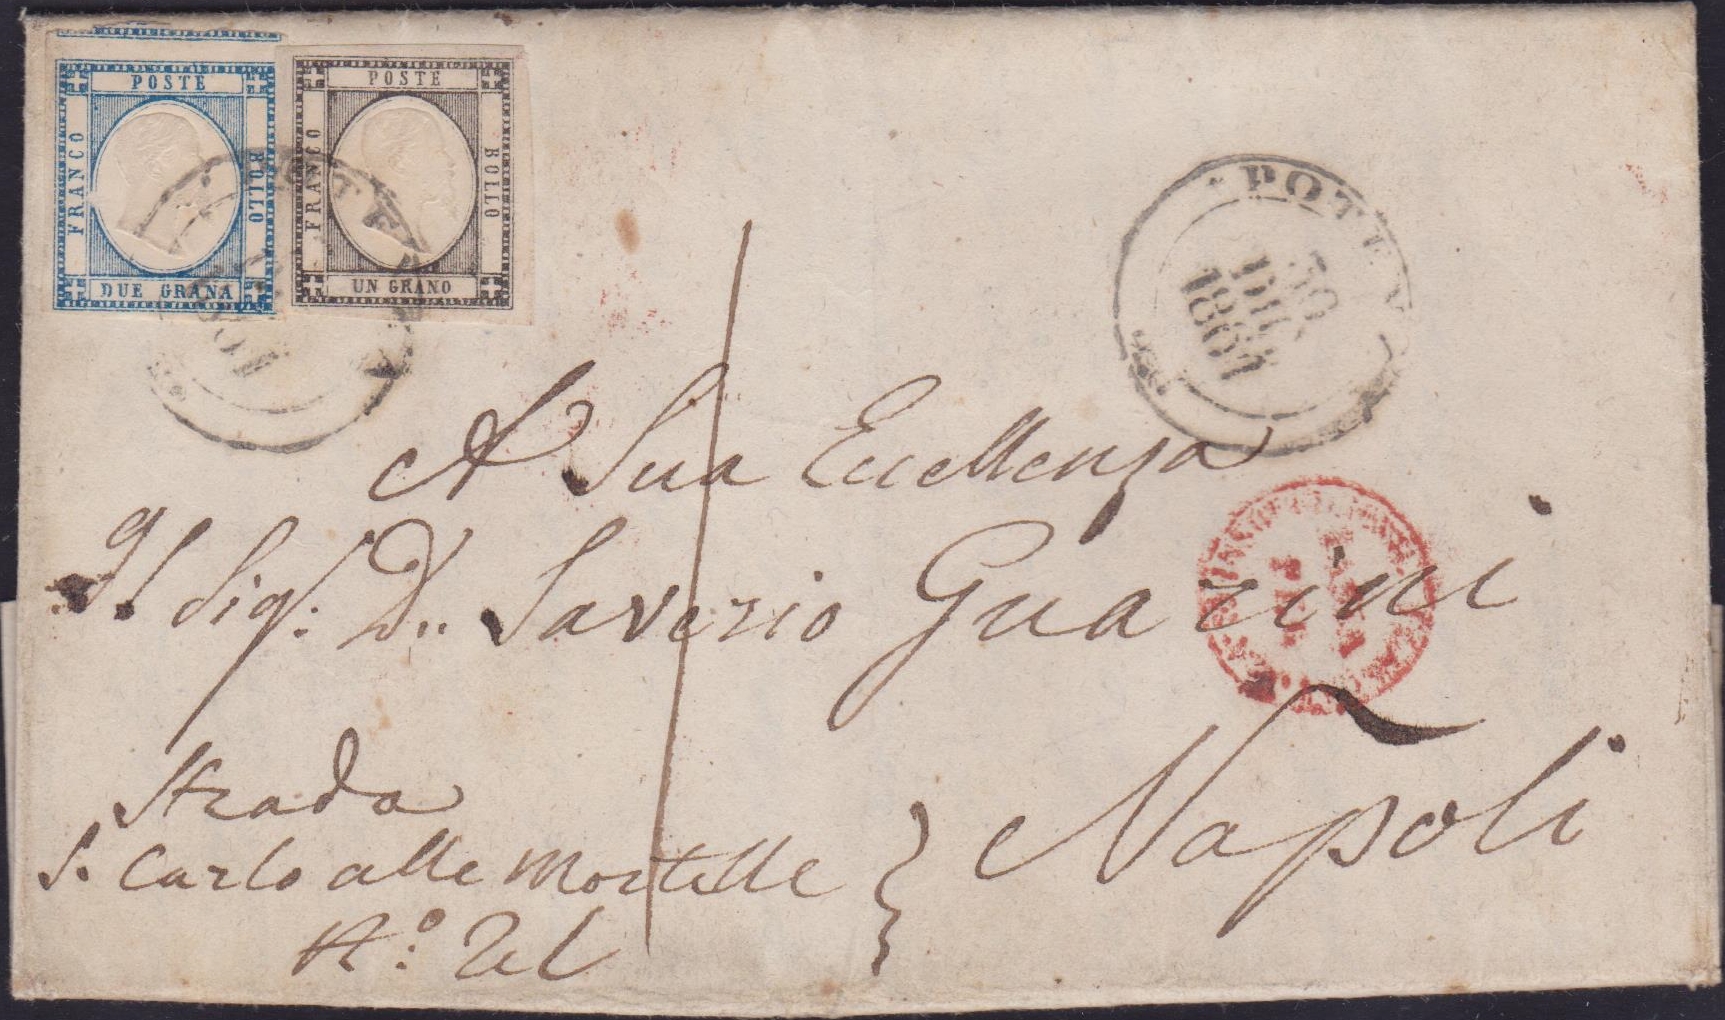 POSTE
FRANCO
BOLLO
DUE GRANA
POSTE
FRANCO
BOLLO
UN GRANO
POTENZA
30
DIC
1861
A Sua Eccellenza
Il Sig. D. Saverio Guarini
Strada
S. Carlo alle Mortelle
N.º
Napoli